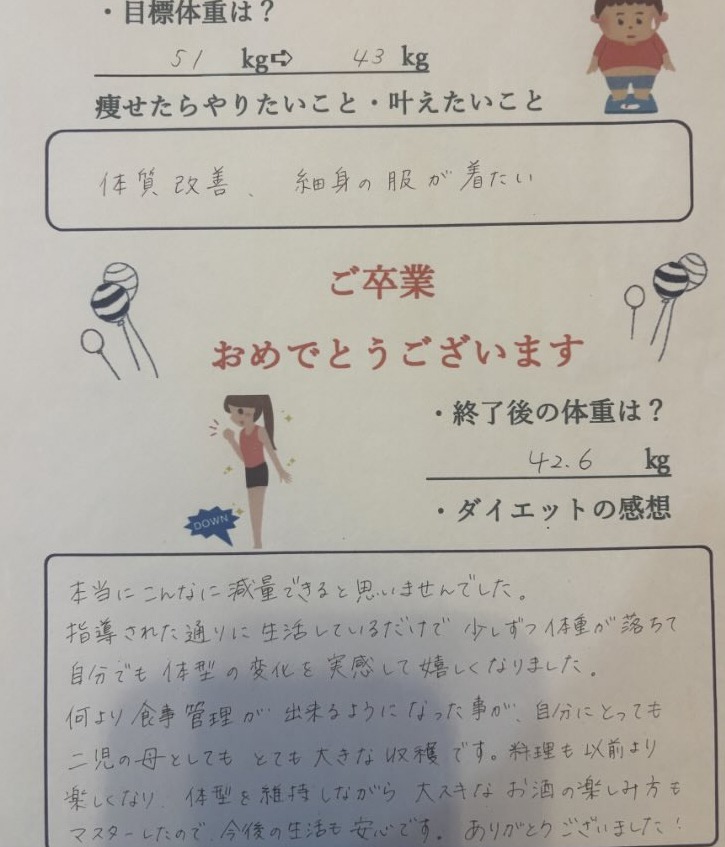 ・目標体重は？
51 kg⇨ 43 kg
痩せたらやりたいこと・叶えたいこと
体質改善、細身の服が着たい
ご卒業
おめでとうございます
・終了後の体重は？
42.6 kg
・ダイエットの感想
DOWN
本当にこんなに減量できると思いませんでした。
指導された通りに生活しているだけで少しずつ体重が落ちて
自分でも体型の変化を実感して嬉しくなりました。
何より食事管理が出来るようになった事が、自分にとっても
二児の母としてもとても大きな収穫です。料理も以前より
楽しくなり、体型を維持しながら大スキなお酒の楽しみ方も
マスターしたので、今後の生活も安心です。ありがとうございました！